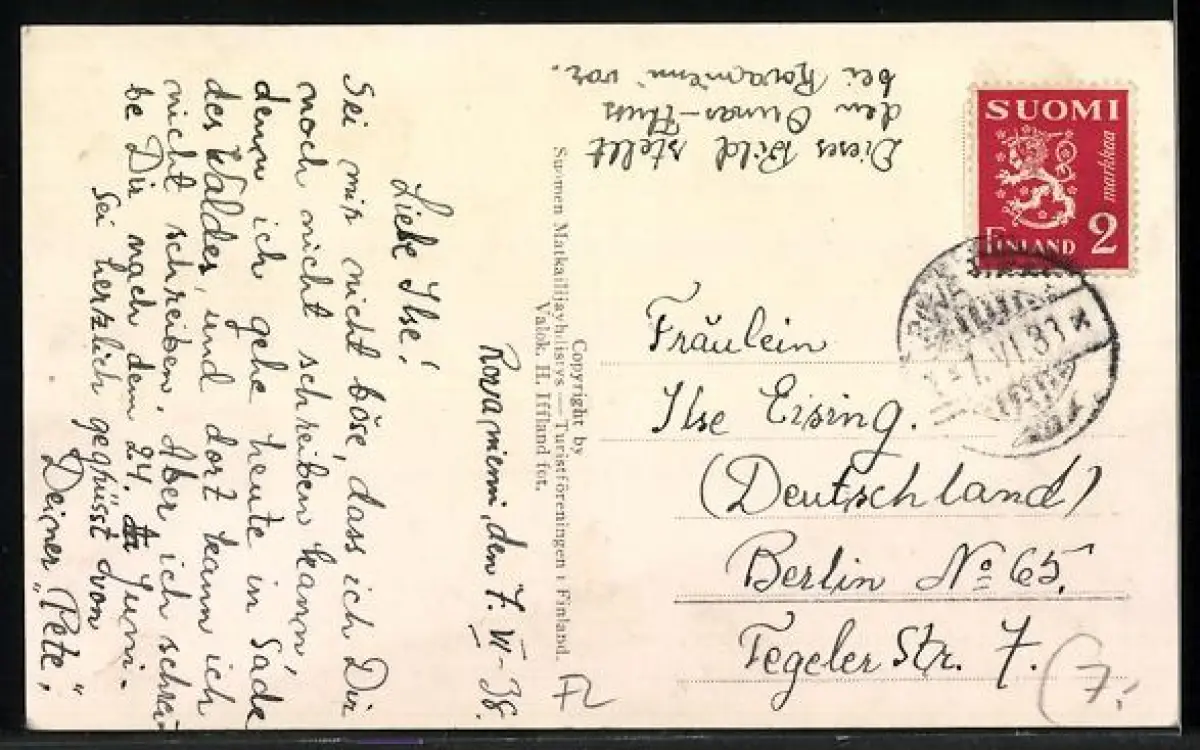 Rovaniemi, den 7. VI-38.
Liebe Ilse!
Sei mir nicht böse, dass ich Dir
noch nicht schreiben kann,
denn ich gehe heute in Sade
des Waldes, und dort kann ich
nicht schreiben. Aber ich schrei
be Dir nach dem 24. Juni.
Sei herzlich gegrüsst von
Deiner „Pete„
Dieses Bild stellt
den Ounas-Fluss
bei Rovaniemi vor.
Copyright by
Suomen Matkailijayhdistys — Turistföreningen i Finland.
Valok. H. Iffland fot.
SUOMI
2 markkaa
FINLAND
7. VI. 38
Fräulein
Ilse Eising.
(Deutschland)
Berlin No 65.
Tegeler Str. 7.
7.